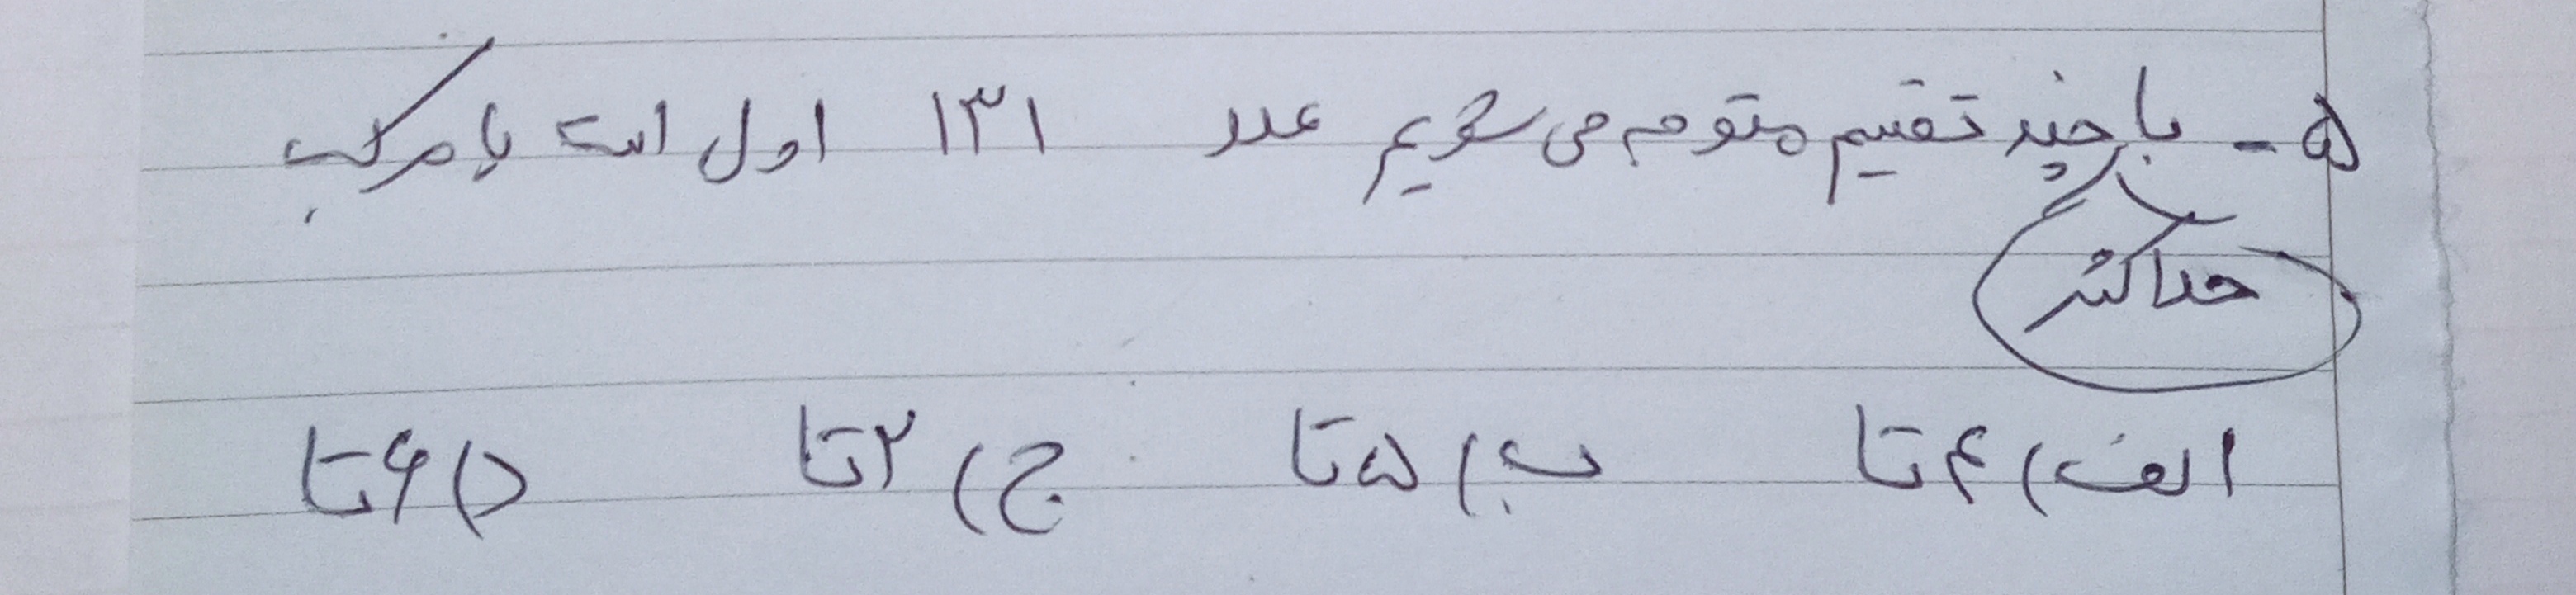 ۵- با چند تقسیم متوجه می شویم عدد ۱۳۱ اول است یا مرکب
حداکثر
الف) ۴ تا ب) ۵ تا ج) ۲ تا د) ۶ تا